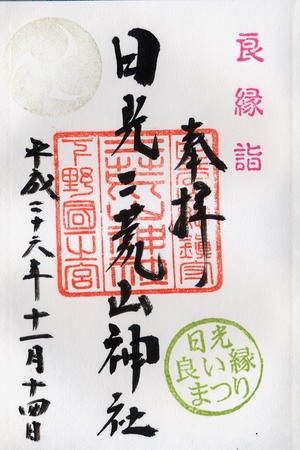 良縁詣
奉拝
日光二荒山神社
下野國一宮
平成二十六年十一月十四日
日光
良い縁
まつり